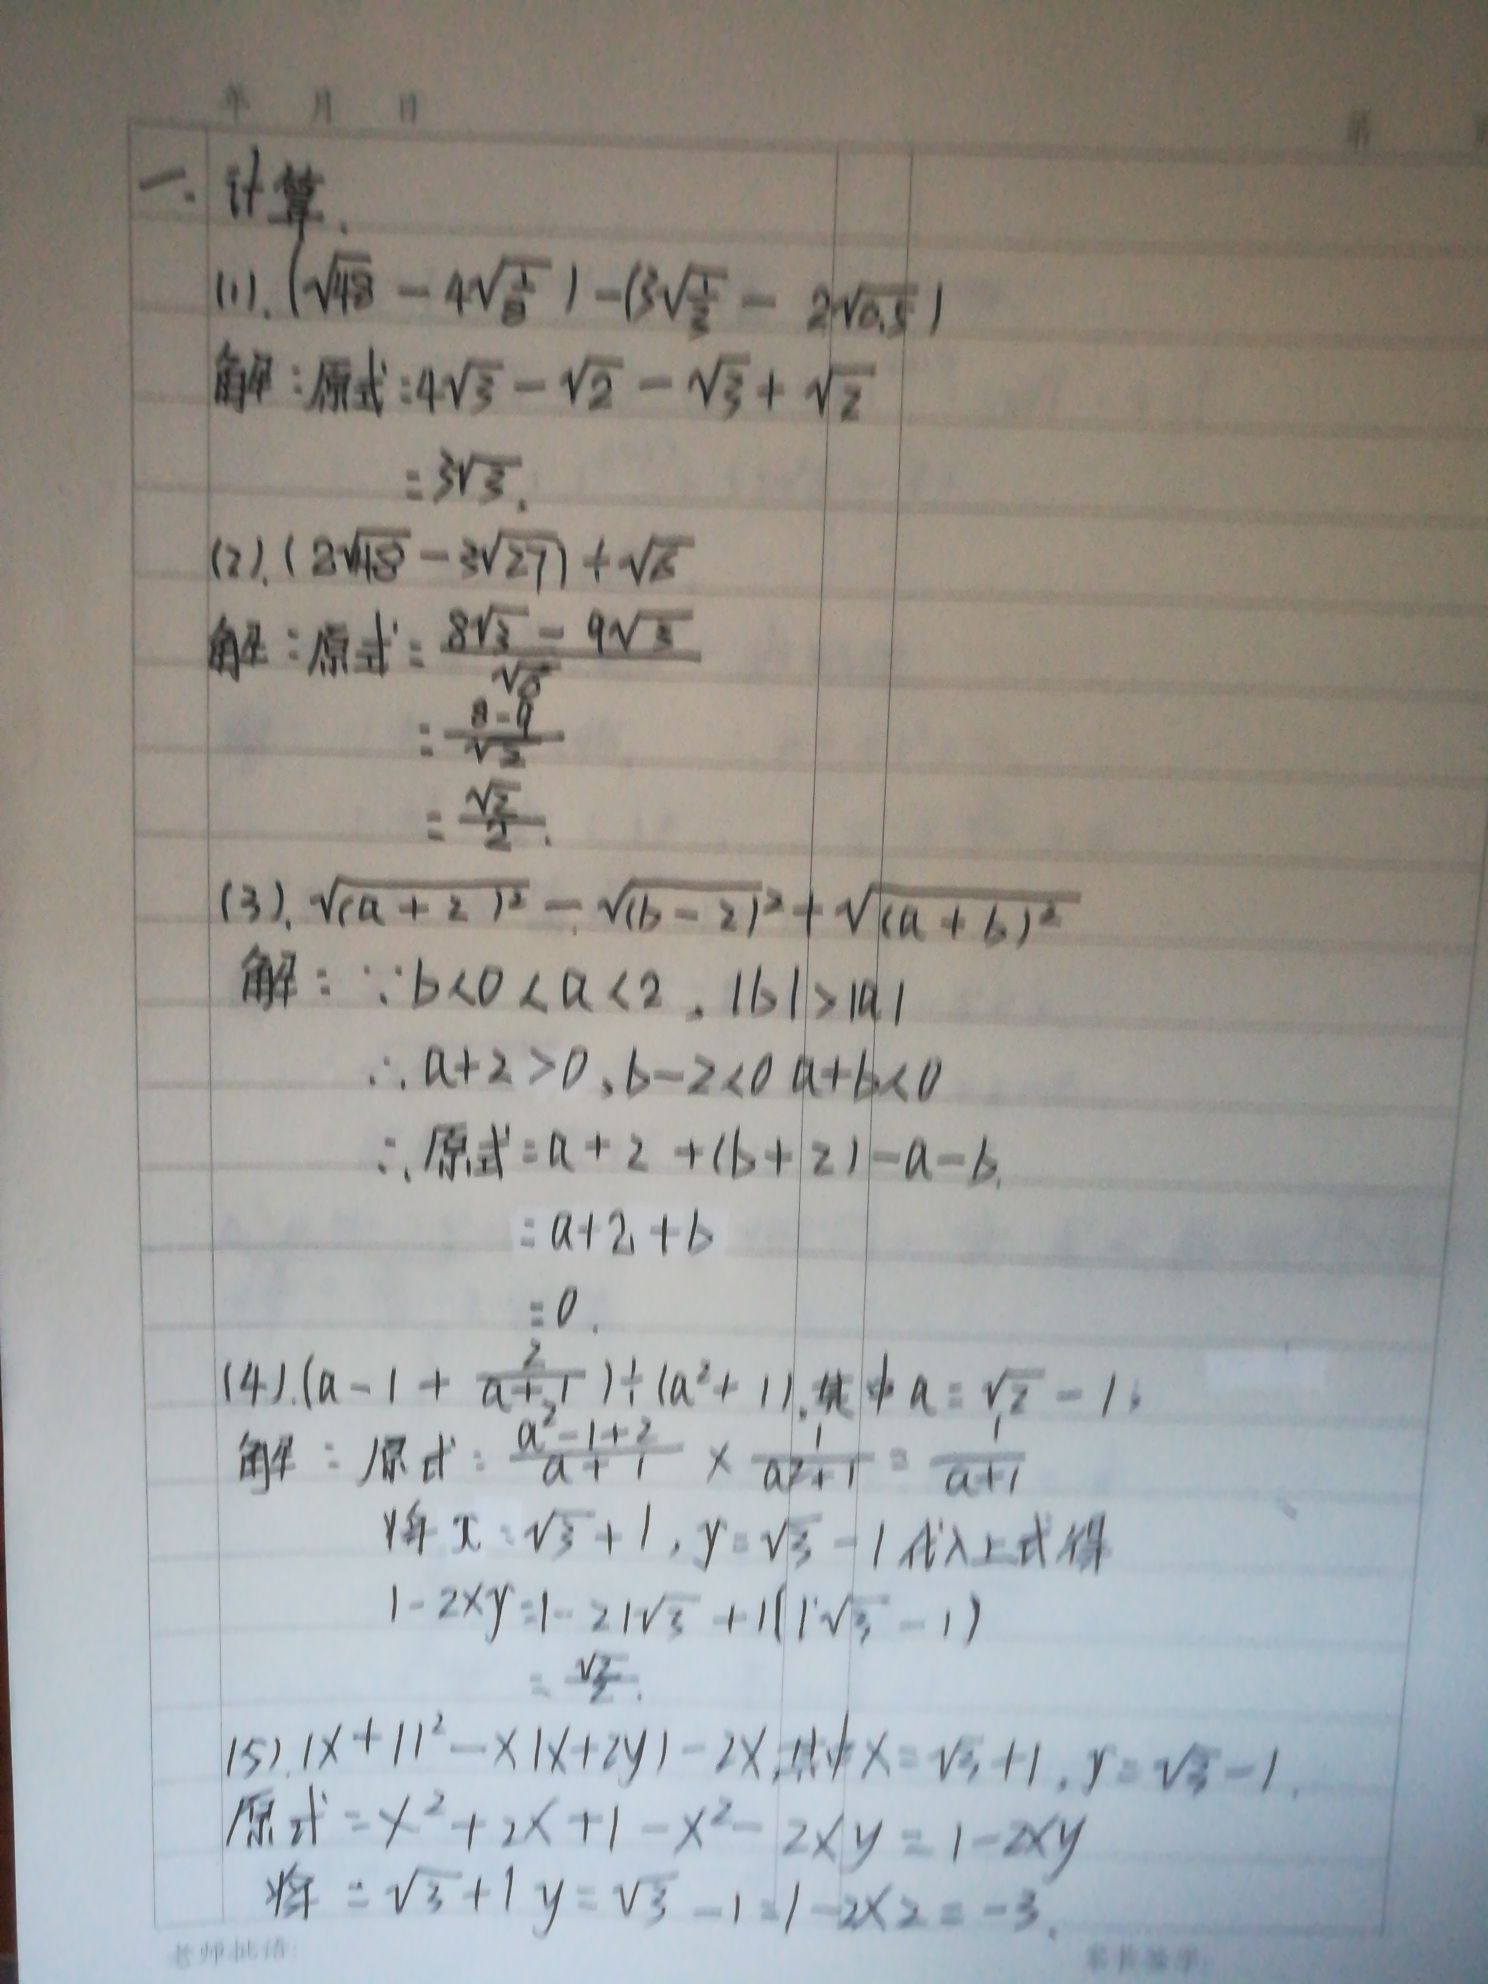 年 月 日
一. 计算.
(1).(√48 - 4√1/8) - (3√1/3 - 2√0.5)
解:原式=4√3 - √2 - √3 + √2
=3√3.
(2).(2√48 - 3√27) ÷ √6
解:原式=(8√3 - 9√3)/√6
=(8-9)/√2
=√2/2.
(3).√(a+2)² - √(b-2)² + √(a+b)²
解:∵b<0<a<2,|b|>|a|
∴a+2>0,b-2<0 a+b<0
∴原式=a+2+(b+2)-a-b.
=a+2+b
=0.
(4).(a-1+2/(a+1))÷(a²+1),其中a=√2-1,
解:原式=(a²-1+2)/(a+1)×1/(a²+1)=1/(a+1)
将x=√3+1,y=√3-1代入上式得
1-2xy=1-2(√3+1)(√3-1)
=√2/2.
(5).(x+1)²-x(x+2y)-2x,其中x=√3+1,y=√3-1.
原式=x²+2x+1-x²-2xy=1-2xy
将=√3+1 y=√3-1=1-2×2=-3.
老师批语: